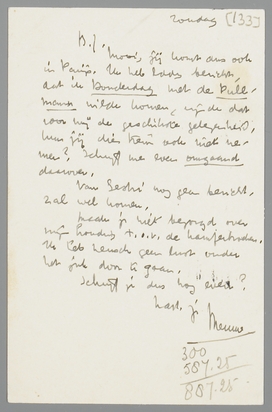 zondag [133]
B.! Mooi, jij komt dus ook
in Parijs. Ik heb Roods bericht
dat ik Donderdag met de Pull-
mann wilde komen,
voor mij de geschikste gelegenheid,
kun jij dien trein ook niet ne-
men? Schrijf me even omgaand
daarover.
Van Gestel nog geen bericht,
zal wel komen.
Maak je niet bezorgd over
mijn houding t.o.v. de
Ik heb heusch geen lust onder
het juk door te gaan.
Schrijf je dus nog even?
Hart. je
Menno
300
587.25
887.25